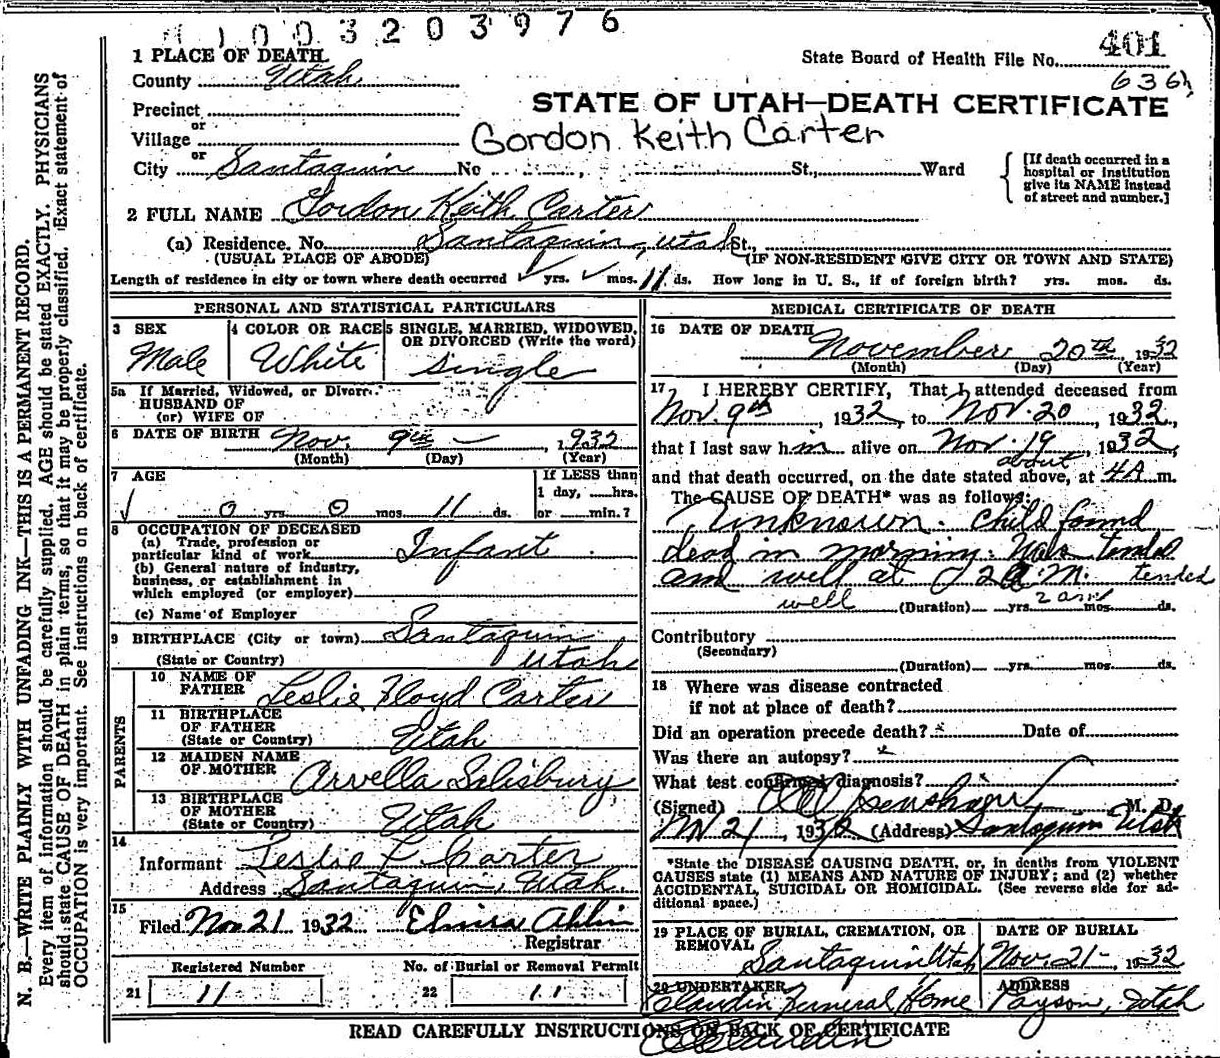 1003203976
1 PLACE OF DEATH.
State Board of Health File No. 401
County Utah
636
Precinct
STATE OF UTAH—DEATH CERTIFICATE
or
Village
Gordon Keith Carter
or
City Santaquin No St., Ward
[If death occurred in a
hospital or institution
give its NAME instead
of street and number.]
2 FULL NAME Gordon Keith Carter
(a) Residence. No. Santaquin, Utah St.,
(USUAL PLACE OF ABODE) (IF NON-RESIDENT GIVE CITY OR TOWN AND STATE)
Length of residence in city or town where death occurred yrs. mos. 11 ds. How long in U. S., if of foreign birth? yrs. mos. ds.
PERSONAL AND STATISTICAL PARTICULARS
3 SEX
Male
4 COLOR OR RACE
White
5 SINGLE, MARRIED, WIDOWED,
OR DIVORCED (Write the word)
Single
5a If Married, Widowed, or Divorc
HUSBAND OF
(or) WIFE OF
6 DATE OF BIRTH Nov. 9th 1932
(Month) (Day) (Year)
7 AGE
If LESS than
1 day, hrs.
0 yrs. 0 mos. 11 ds. or min.?
8 OCCUPATION OF DECEASED
(a) Trade, profession or
particular kind of work Infant
(b) General nature of industry,
business, or establishment in
which employed (or employer)
(c) Name of Employer
9 BIRTHPLACE (City or town) Santaquin
(State or Country) Utah
PARENTS
10 NAME OF
FATHER Leslie Floyd Carter
11 BIRTHPLACE
OF FATHER
(State or Country) Utah
12 MAIDEN NAME
OF MOTHER Arvella Salisbury
13 BIRTHPLACE
OF MOTHER
(State or Country) Utah
14
Informant Leslie F. Carter
Address Santaquin, Utah.
15
Filed Nov 21 1932 Elmira Ahlin
Registrar
Registered Number No. of Burial or Removal Permit
21 11 22 11
MEDICAL CERTIFICATE OF DEATH
16 DATE OF DEATH
November 20th, 1932
(Month) (Day) (Year)
17 I HEREBY CERTIFY, That I attended deceased from
Nov. 9th, 1932, to Nov. 20, 1932,
that I last saw him alive on Nov. 19, 1932,
about
and that death occurred, on the date stated above, at 4A m.
The CAUSE OF DEATH* was as follows:
Unknown. Child found
dead in morning. Was tended
and well at 2 A.M. tended
well (Duration) yrs. 2 am mos. ds.
Contributory
(Secondary)
(Duration) yrs. mos. ds.
18 Where was disease contracted
if not at place of death?
Did an operation precede death? Date of
Was there an autopsy?
What test confirmed diagnosis?
(Signed) M. D.
Nov 21, 1932 (Address) Santaquin Utah
*State the DISEASE CAUSING DEATH, or, in deaths from VIOLENT
CAUSES state (1) MEANS AND NATURE OF INJURY; and (2) whether
ACCIDENTAL, SUICIDAL OR HOMICIDAL. (See reverse side for ad-
ditional space.)
19 PLACE OF BURIAL, CREMATION, OR
REMOVAL
Santaquin Utah
DATE OF BURIAL
Nov. 21- 1932
20 UNDERTAKER
Claudin Funeral Home
ADDRESS
Payson, Utah
READ CAREFULLY INSTRUCTIONS ON BACK OF CERTIFICATE
N. B.—WRITE PLAINLY WITH UNFADING INK—THIS IS A PERMANENT RECORD.
Every item of information should be carefully supplied. AGE should be stated EXACTLY. PHYSICIANS
should state CAUSE OF DEATH in plain terms, so that it may be properly classified. Exact statement of
OCCUPATION is very important. See instructions on back of certificate.